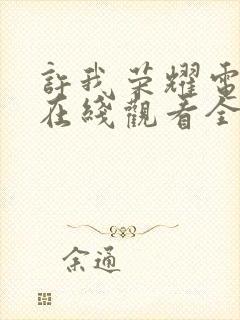 許我荣耀電
在綫觀看全
余通